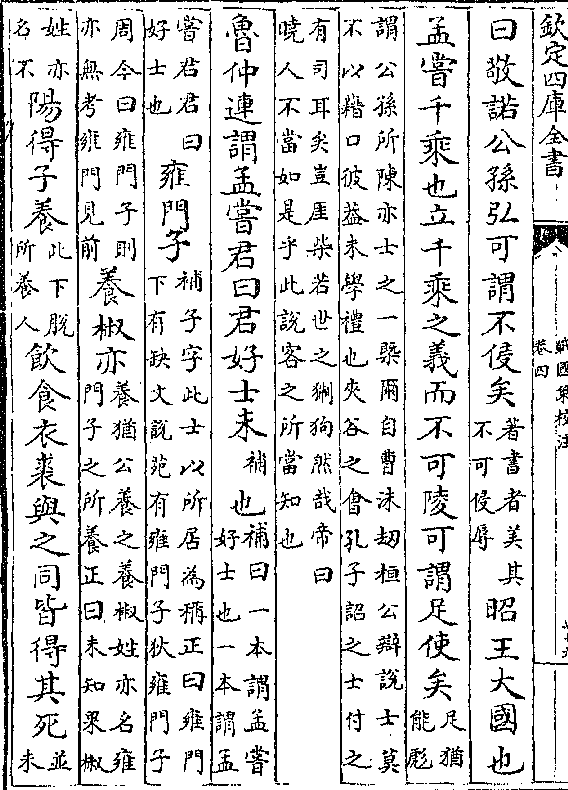 欽定四庫全書
戰國策校注
卷四
曰敬諾公孫弘可謂不侵矣著書者美其不可侵辱昭王大國也
孟嘗千乘也立千乘之義而不可陵可謂足使矣足猶能彪
謂公孫所陳亦士之一槩爾自曹沫刼桓公辯說士莫
不以藉口彼葢未學禮也夾谷之會孔子詔之士付之
有司耳矣豈厓柴若世之猘狗然哉帝曰
曉人不當如是乎此說客之所當知也
魯仲連謂孟嘗君曰君好士未補也補曰一本謂孟嘗好士也一本謂孟
嘗君君曰好士也雍門子補子字此士以所居為稱正曰雍門下有缺文說苑有雍門子狄雍門子
周今曰雍門子則亦無考雍門見前養椒亦養猶公養之養椒姓亦名雍門子之所養正曰未知果椒
姓亦名不陽得子養此下脫所養人飲食衣裘與之同皆得其死並未